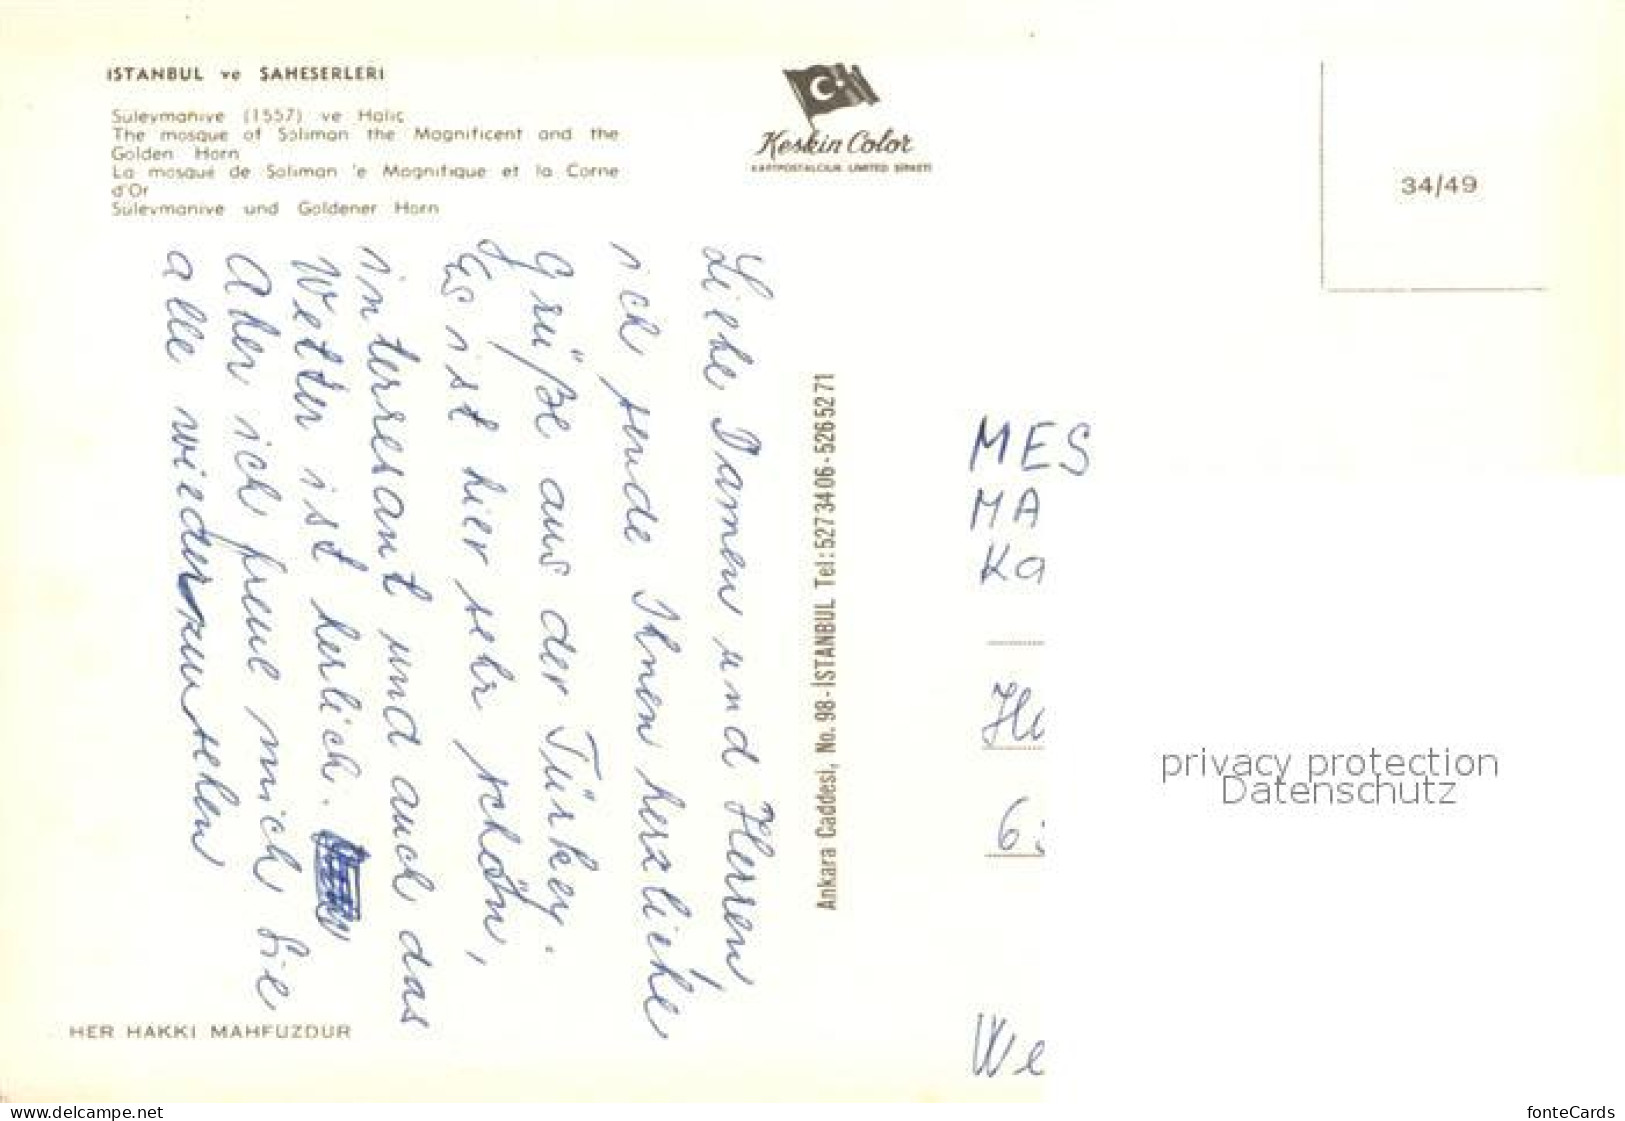 İSTANBUL ve ŞAHESERLERİ
Süleymaniye (1557) ve Haliç
The mosque of Soliman the Magnificent and the
Golden Horn
La mosqué de Soliman 'e Magnifique et la Corne
d'Or
Süleymaniye und Goldener Horn
Keskin Color
KARTPOSTALCILIK LIMITED ŞİRKETİ
34/49
Liebe Damen und Herren,
ich sende Ihnen herzliche
Grüße aus der Türkey.
Es ist hier sehr schön,
interresant und auch das
Wetter ist herlich.
Aber ich freue mich Sie
alle wiederzusehen
Ankara Caddesi, No. 98-İSTANBUL Tel: 527 34 06 - 526 52 71
MES
MA
Ka
Ha
6
We
privacy protection
Datenschutz
HER HAKKI MAHFUZDUR
www.delcampe.net
fonteCards